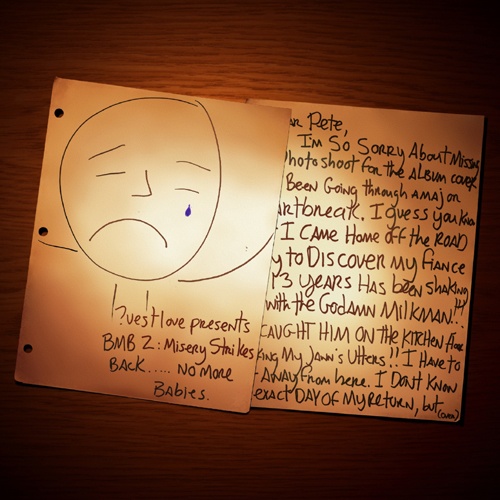 ?uestlove presents
BMB 2: Misery Strikes
BACK..... No MORE
Babies.
ar Pete,
I'm So Sorry About Missing
Photoshoot for the Album cover
Been Going through a major
artbreak. I guess you know
I CAME Home off the ROAD
y to DISCOVER my fiance
13 YEARS HAS been shaking
with the Godamn Milkman!!
CAUGHT HIM ON the KITCHEN floor
king My Jann's Utters!! I HAVE to
AWAY from here. I DON't KNOW
exact DAY OF My RETURN, but (over)